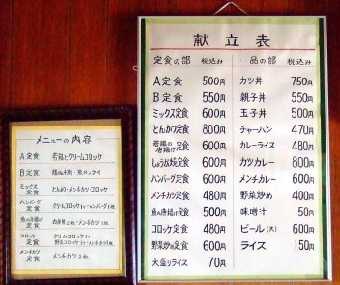 献立表
定食の部 税込み
A定食 500円
B定食 550円
ミックス定食 600円
とんかつ定食 800円
若鶏の唐揚げ定食 600円
しょうが焼定食 600円
ハンバーグ定食 600円
メンチカツ定食 480円
魚の唐揚げ定食 500円
コロッケ定食 480円
野菜炒め定食 600円
大盛りライス 70円
一品の部 税込み
カツ丼 750円
親子丼 550円
玉子丼 500円
チャーハン 470円
カレーライス 480円
カツカレー 800円
メンチカレー 600円
野菜炒め 400円
味噌汁 50円
ビール(大) 600円
ライス 50円
メニューの内容
A定食 若鶏とクリームコロッケ
B定食
ミックス定食 とんかつ・メンチカツ・コロッケ
ハンバーグ定食
魚の唐揚げ定食
コロッケ定食
メンチカツ定食 メンチカツ 2枚